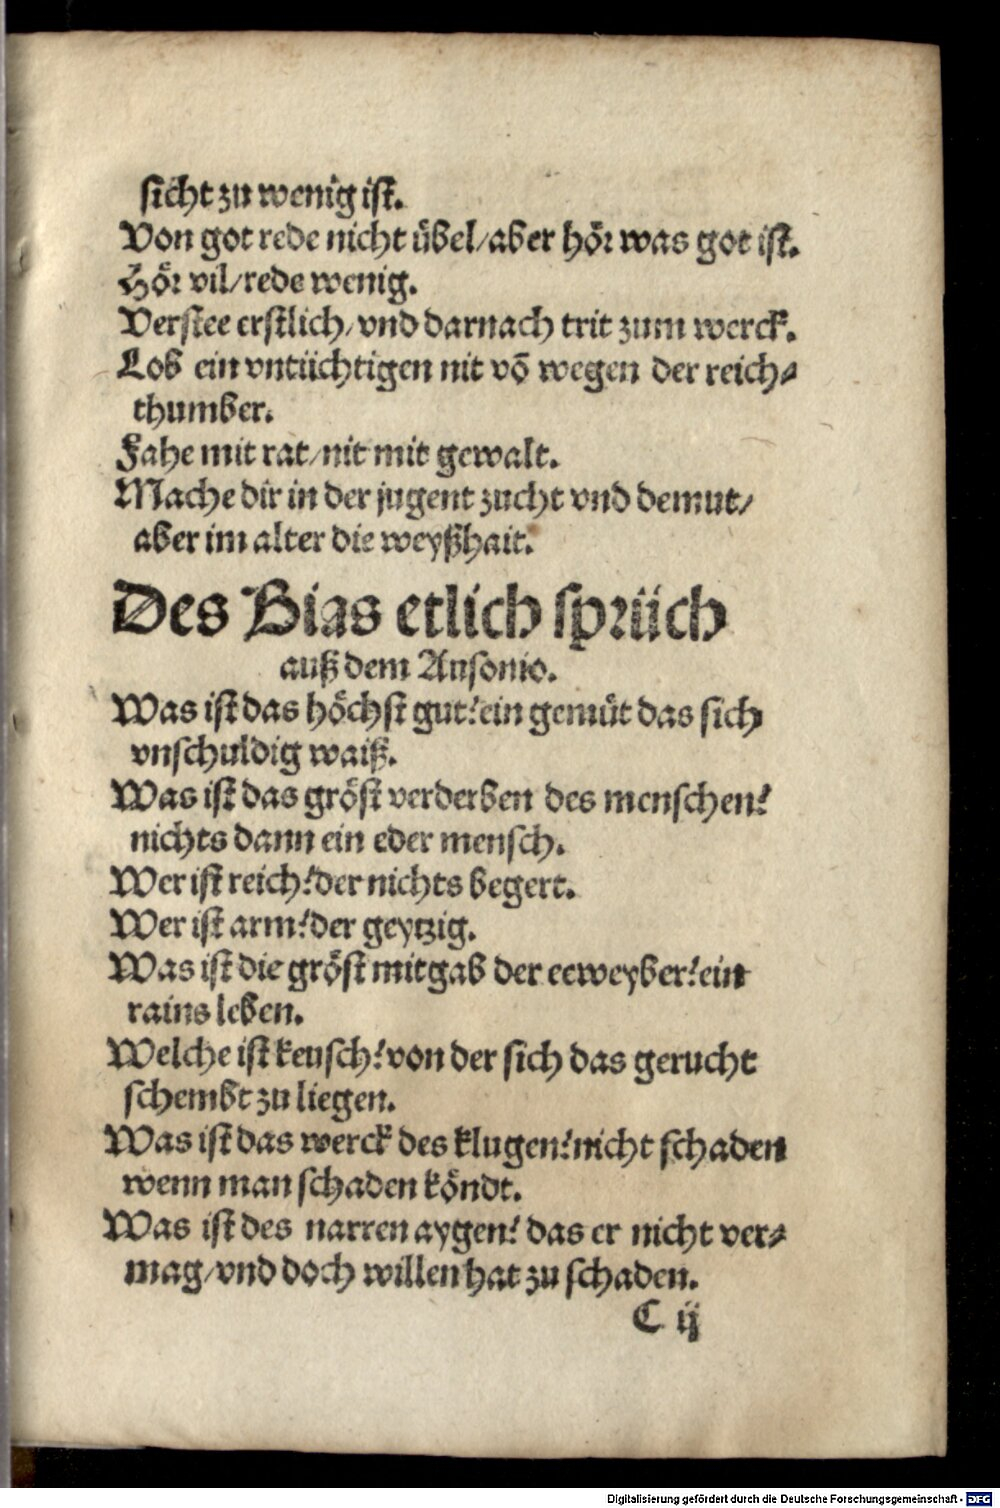 sicht zu wenig ist.
Von got rede nicht übel/aber hör was got ist.
Hör vil/rede wenig.
Verstee erstlich/vnd darnach trit zum werck.
Lob ein vntüchtigen nit vō wegen der reich⸗
thumber.
Fahe mit rat/nit mit gewalt.
Mache dir in der jugent zucht vnd demut/
aber im alter die weyßhait.
Des Bias etlich sprüch
auß dem Ausonio.
Was ist das höchst gut?ein gemüt das sich
vnschuldig waiß.
Was ist das gröst verderben des menschen?
nichts dann ein eder mensch.
Wer ist reich?der nichts begert.
Wer ist arm?der geytzig.
Was ist die gröst mitgab der eeweyber?ein
rains leben.
Welche ist keusch?von der sich das gerucht
schembt zu liegen.
Was ist das werck des klugen?nicht schaden
wenn man schaden köndt.
Was ist des narren aygen? das er nicht ver⸗
mag/vnd doch willen hat zu schaden.
C ij
Digitalisierung gefördert durch die Deutsche Forschungsgemeinschaft - DFG